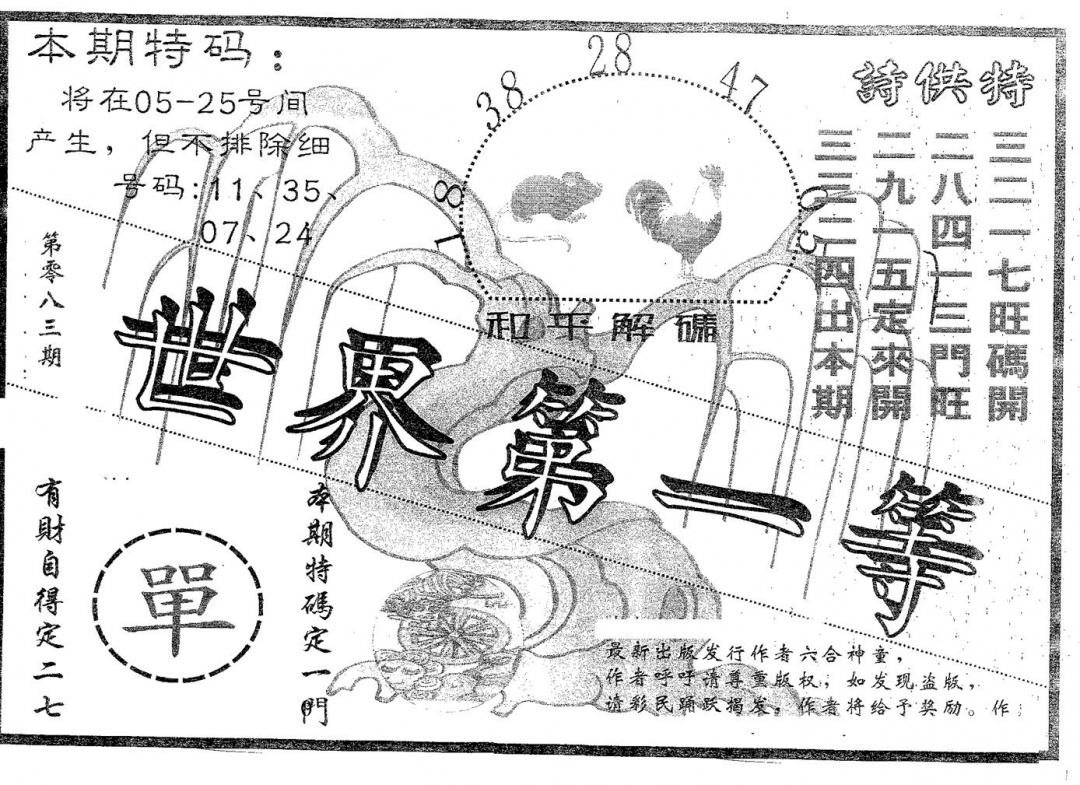 本期特码：
将在05-25号间
产生，但不排除细
号码:11、35、
07、24
第零八三期
18
38
28
47
05
和平解礦
特供詩
三二一七旺碼開
二八四一三門旺
二九一五定來開
三三二四出本期
世界第一等
有財自得定二七
單
本期特碼定一門
最新出版发行作者六合神童，
作者呼吁请尊重版权，如发现盗版，
请彩民踊跃揭发，作者将给予奖励。作